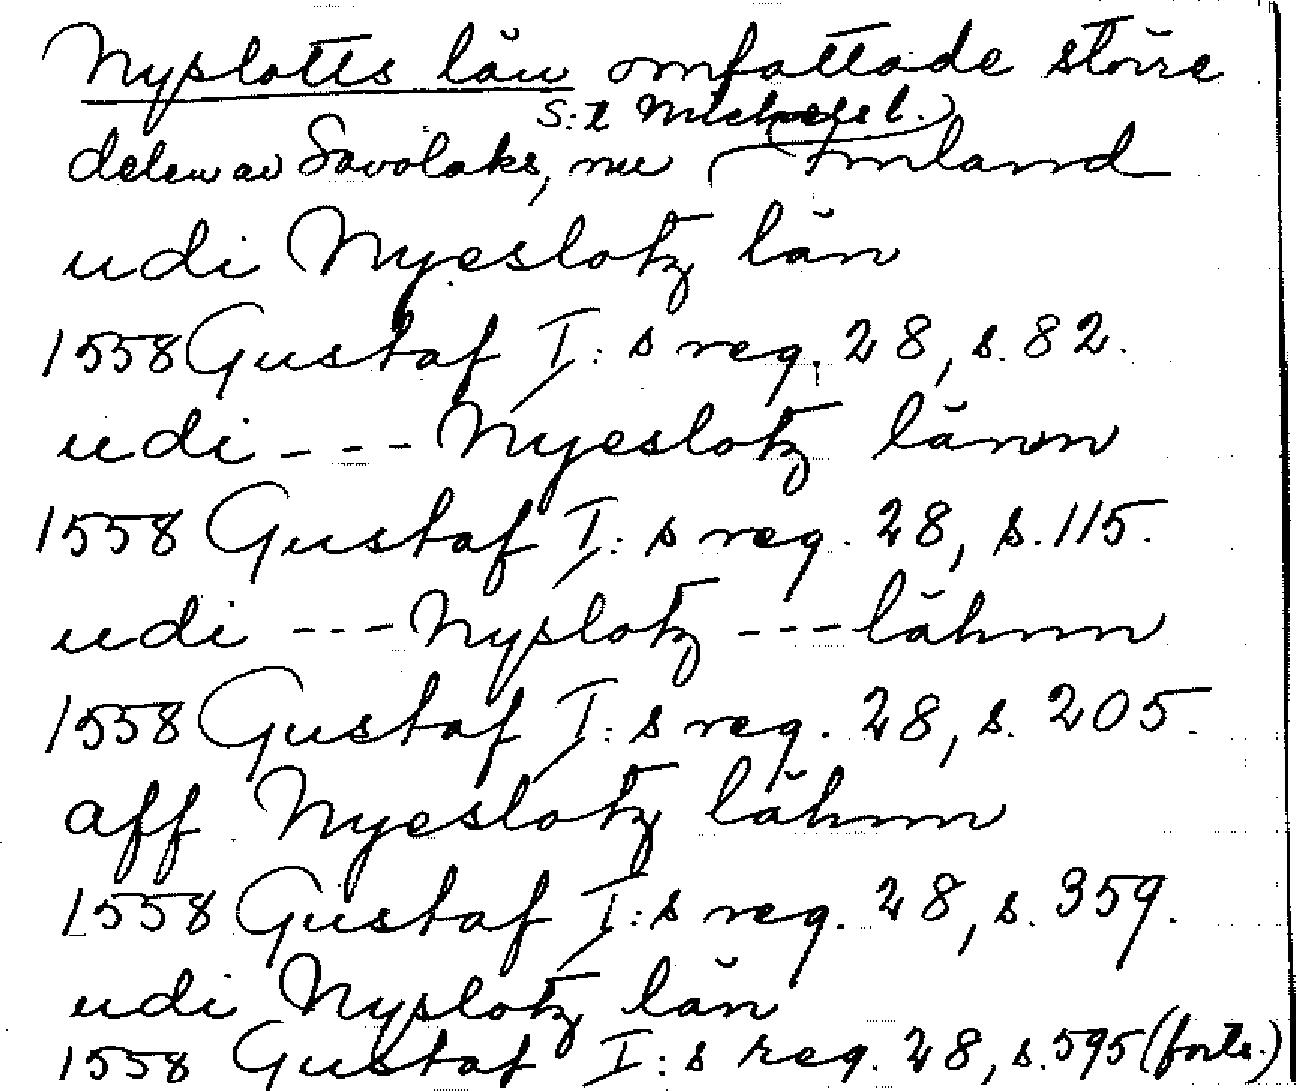 Nyslotts län omfattade större
S:t Michels l.
delen av Savolaks, nu ( Finland
udi Nyeslotz län
1558 Gustaf I:s reg. 28, s. 82.
udi --- Nyeslotz länn
1558 Gustaf I:s reg. 28, s. 115.
udi --- Nyslotz --- lähnn
1558 Gustaf I:s reg. 28, s. 205.
aff Nyeslotz lähnn
1558 Gustaf I:s reg. 28, s. 359.
udi Nyslotz län
1558 Gustaf I:s reg. 28, s. 595 (forts.)